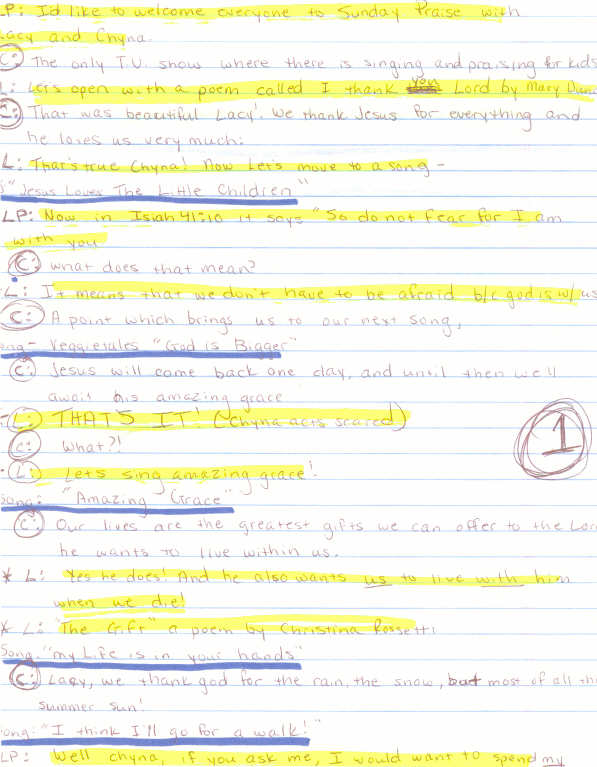 LP: I'd like to welcome everyone to Sunday Praise with
Lacy and Chyna.
C: The only T.V. show where there is singing and praising for kids
L: Let's open with a poem called I thank you Lord by Mary
C: That was beautiful Lacy! We thank Jesus for everything and
he loves us very much!
L: That's true Chyna! Now let's move to a song -
"Jesus Loves The Little Children"
LP: Now in Isiah 41:10 it says "So do not fear for I am
with you
C: what does that mean?
L: It means that we don't have to be afraid b/c god is w/ us
C: A point which brings us to our next song,
ong - Veggietales "God is Bigger"
C: Jesus will come back one day, and until then we'll
await his amazing grace
L: THATS IT! (Chyna acts scared)
C: What?!
L: Lets sing amazing grace!
Song: "Amazing Grace"
1
C: Our lives are the greatest gifts we can offer to the Lord
he wants to live within us.
* L: Yes he does! And he also wants us to live with him
when we die!
* L: "The Gift" a poem by Christina Rossetti
Song: "my Life is in your hands"
C: Lacy, we thank god for the rain, the snow, but most of all the
summer sun!
ong: "I think I'll go for a walk!"
LP: Well chyna, if you ask me, I would want to spend my